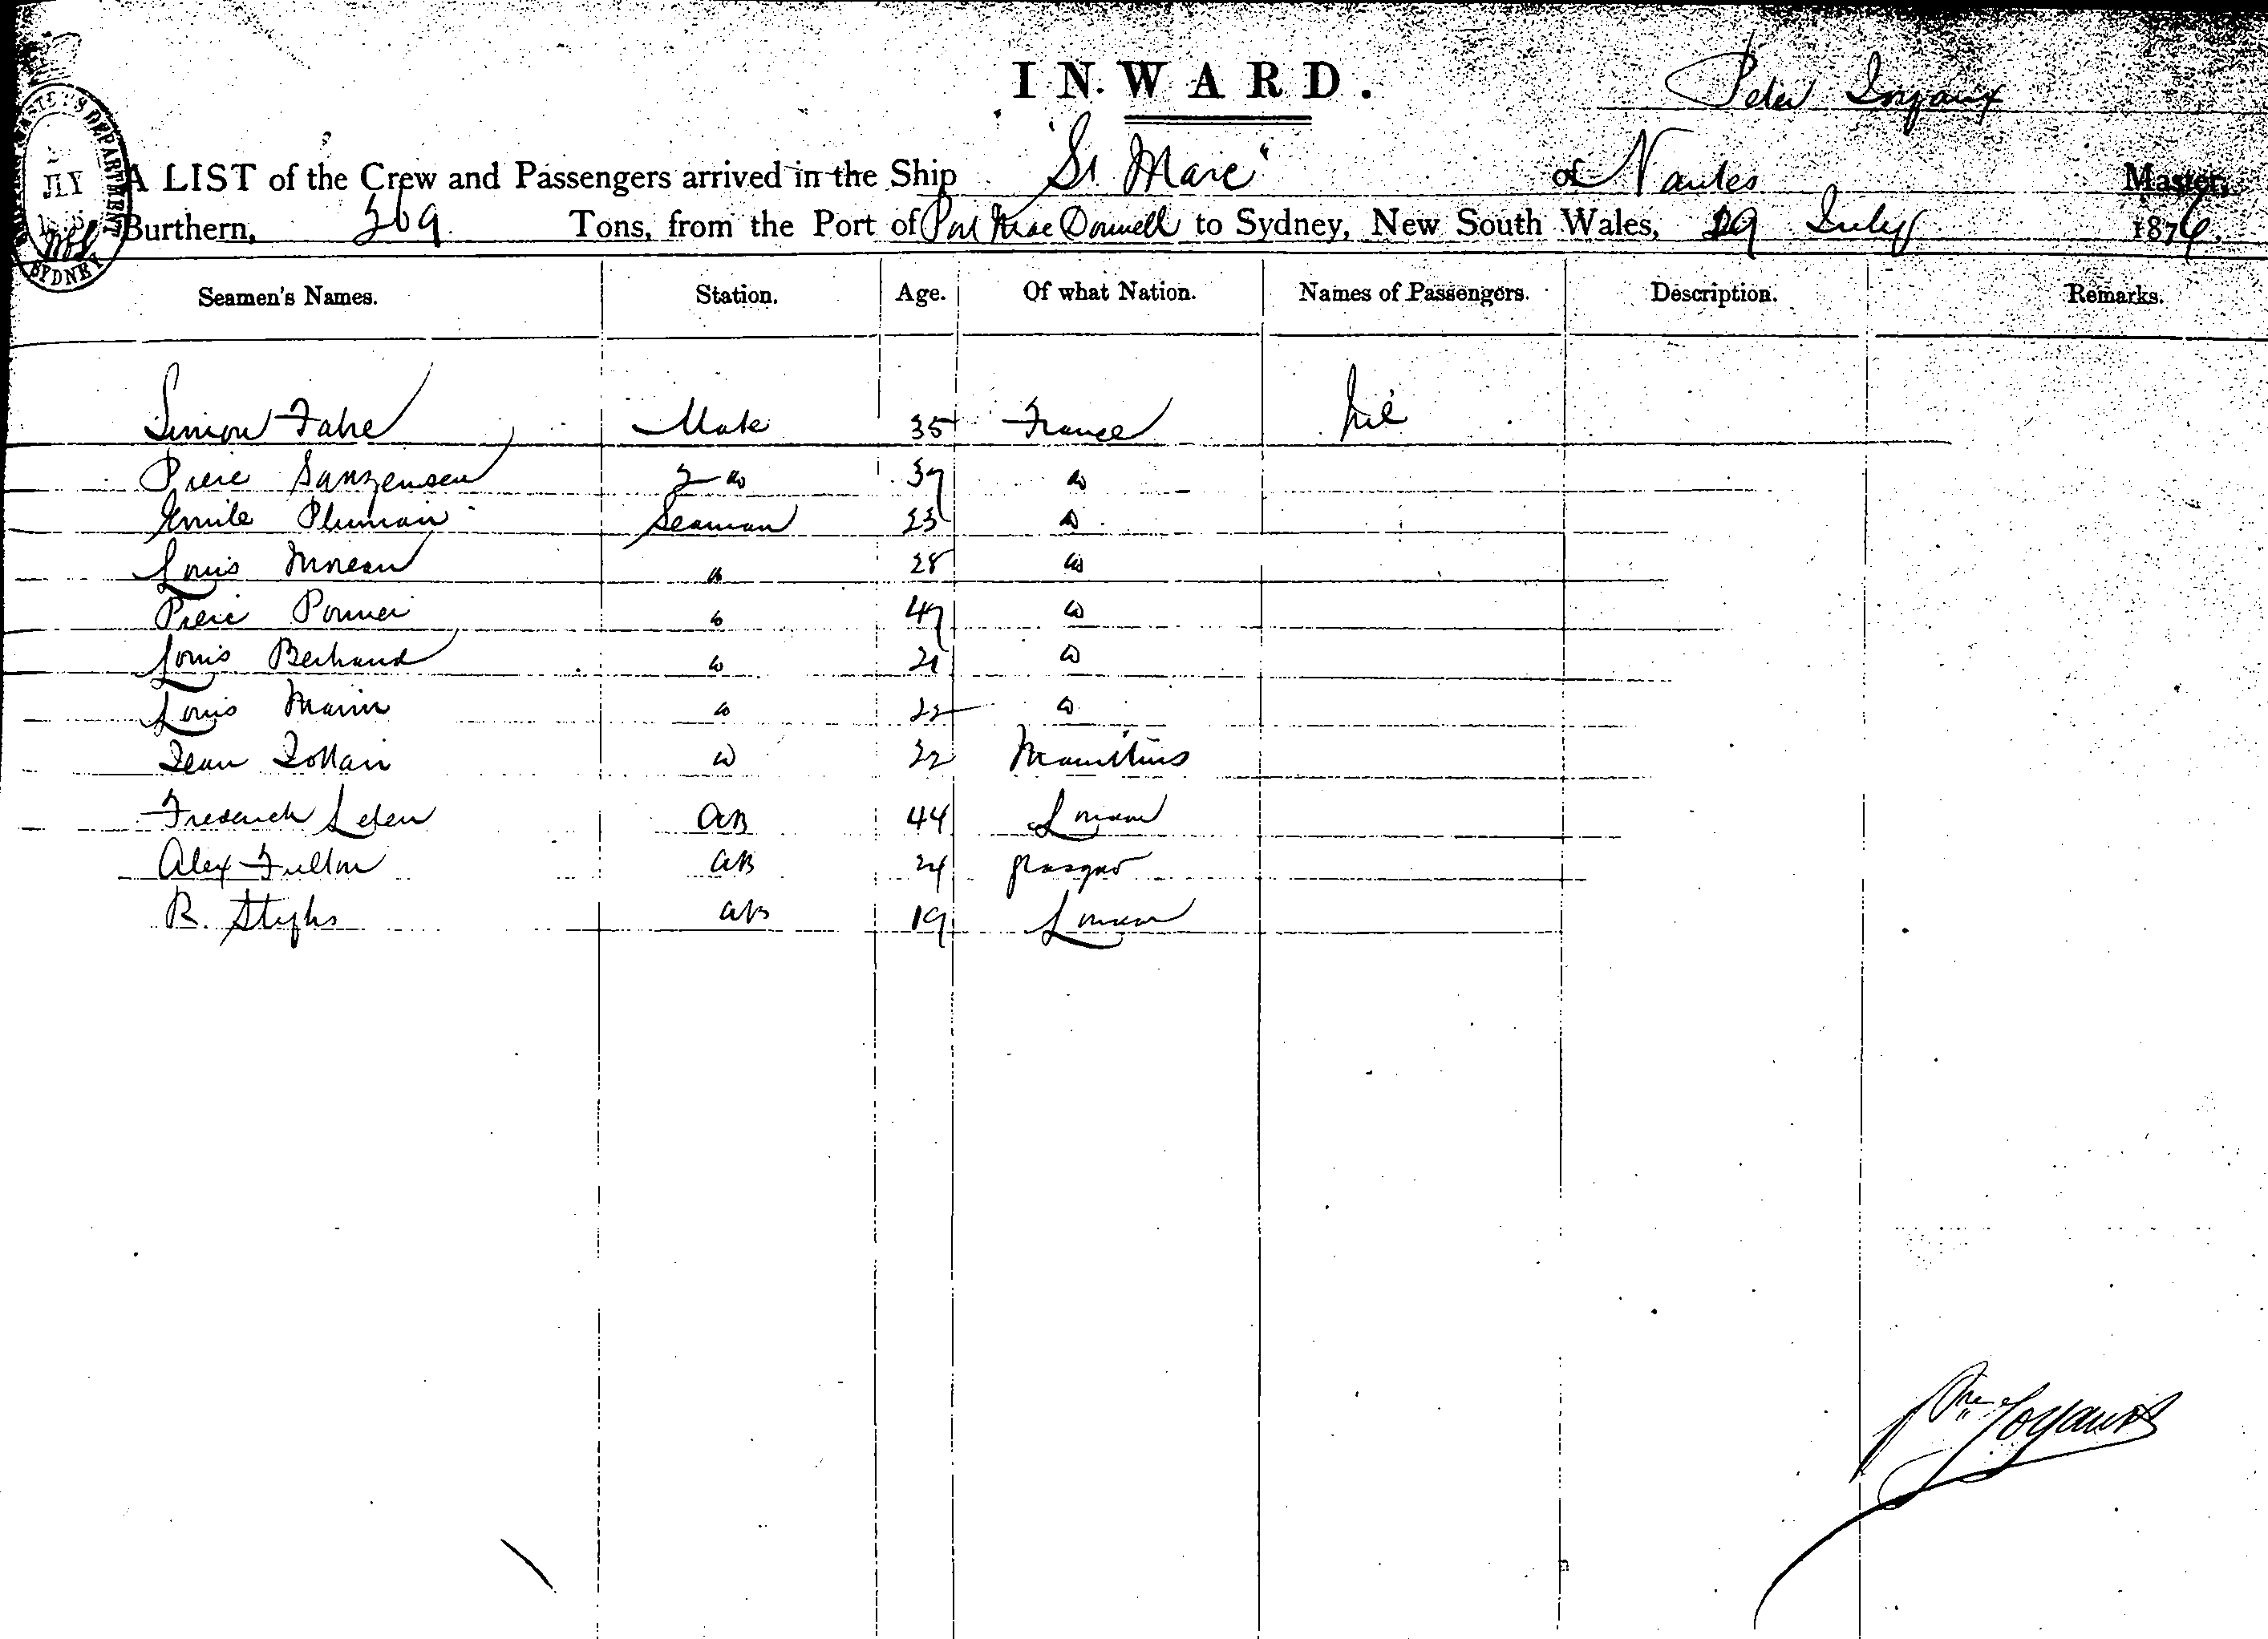 INWARD.
Peter
A LIST of the Crew and Passengers arrived in the Ship "St Marc" of Nantes Master,
Burthern, 369 Tons, from the Port of Port Mac Donnell to Sydney, New South Wales, 29 July 1876.
DEPARTMENT
JLY
SYDNEY
Seamen's Names. Station. Age. Of what Nation. Names of Passengers. Description. Remarks.
Simon Fabre Mate 35 France Nil
Piere 2 do 37 do
Emile Seaman 23 do
Louis Moreau do 28 do
Piere do 47 do
Louis Bertrand do 21 do
Louis Marin do 22 do
Jean do 22 Mauritius
Frederick AB 44 London
Alex Fulton AB 24 Glasgow
R. AB 19 London